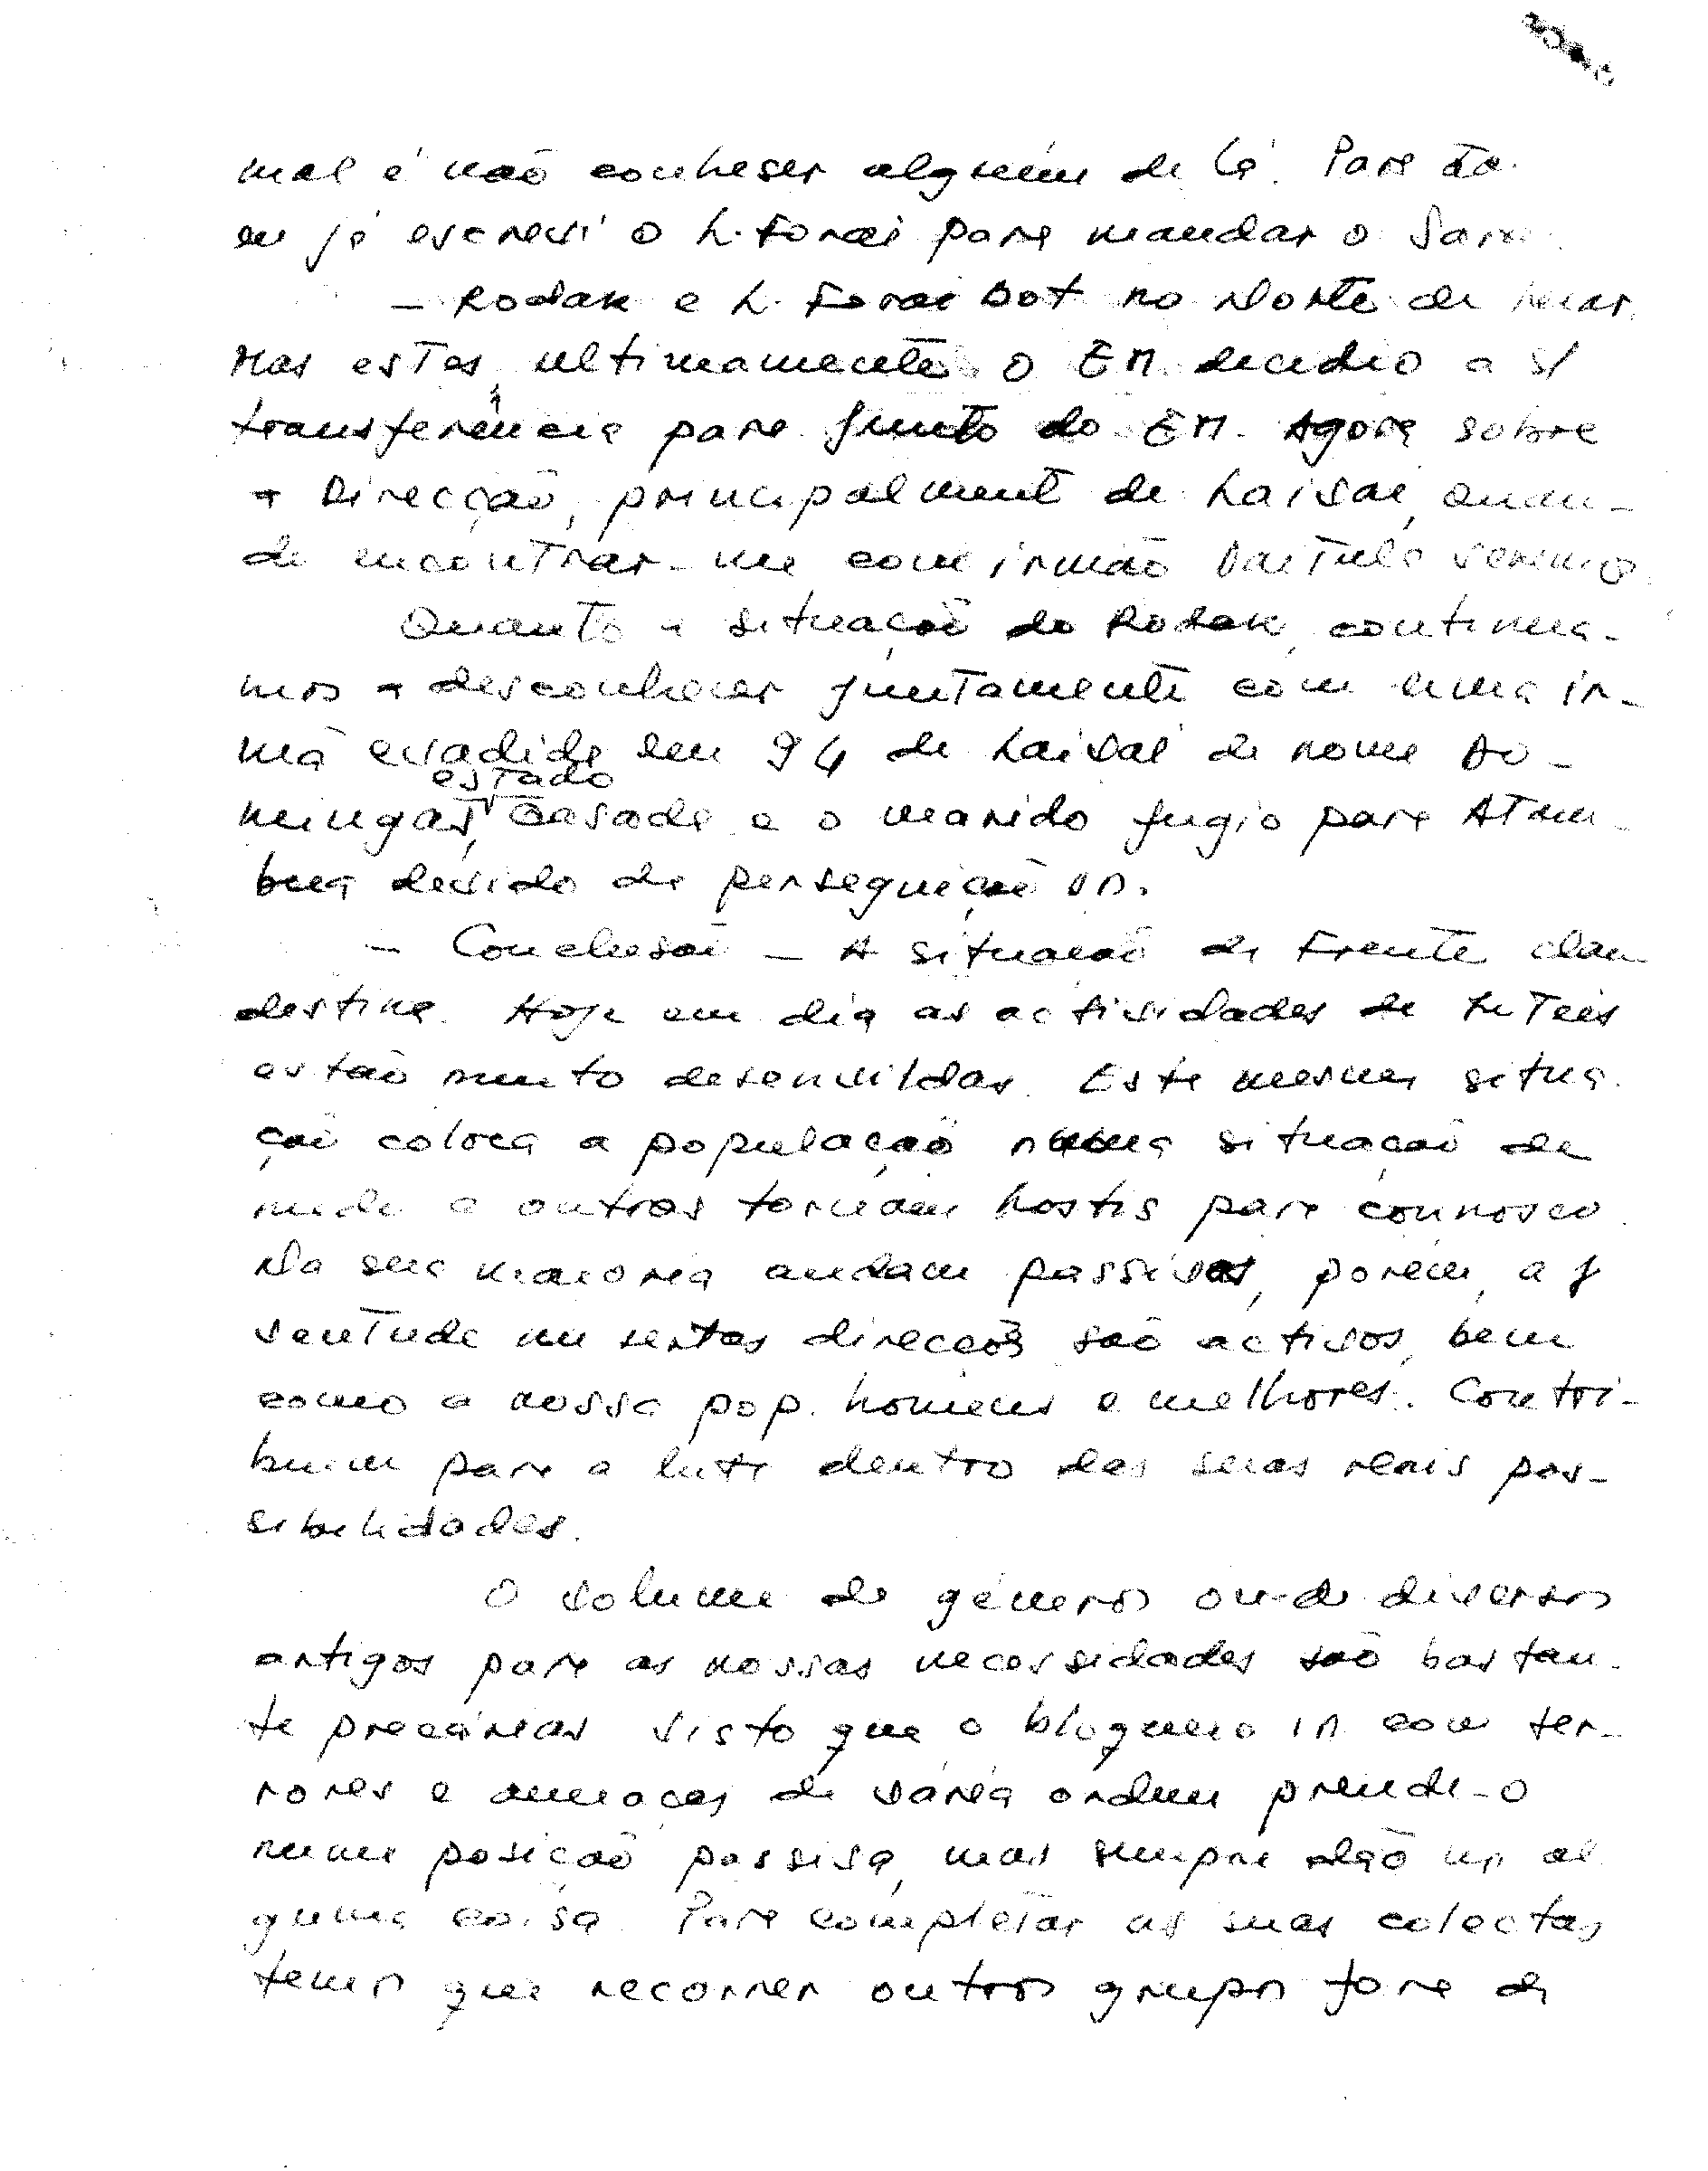 mal é não conheser alguém de lá. Para
eu já escrevi o L. Forai para mandar o
- Rodak e L. Forai Bot no Norte de
Mas estes, ultimamente o EM decidio a s/
transferência para junto do EM. Agora sobre
a Direcção, principalment de Laisai, quan-
do encontrar-me com irmão veremos.
Quanto a situação do Rodak, continua-
mos a desconhecer juntamente com uma ir-
mã evadida em 94 de Laivai de nome Do-
mingas, estado casada e o marido fugio para Atam-
bua devido de perseguição in.
- Conclusão - A situação de Frente clan
destina. Hoje em dia as actividades de
estão muito desenvildas. Este mesma situa
ção coloca a população numa situação de
medo e outros tornam hostis para connosco.
Na sua maioria andam passivos, porém, a j
ventude nu sertas direcções são activos, bem
como a nossa pop. homens e melhores. Contri-
buem para a luta dentro das suas reais pos-
sibilidades.
O volume de géneros ou de diversos
artigos para as nossas necessidades são bastan-
te precárias visto que o bloqueio in com ter-
rores e ameaças de vária ordem prende-o
numa posição passiva, mas sempre dão nos al
guma coisa. Para completar as suas colectas
temos que recorrer outros grupos fora de